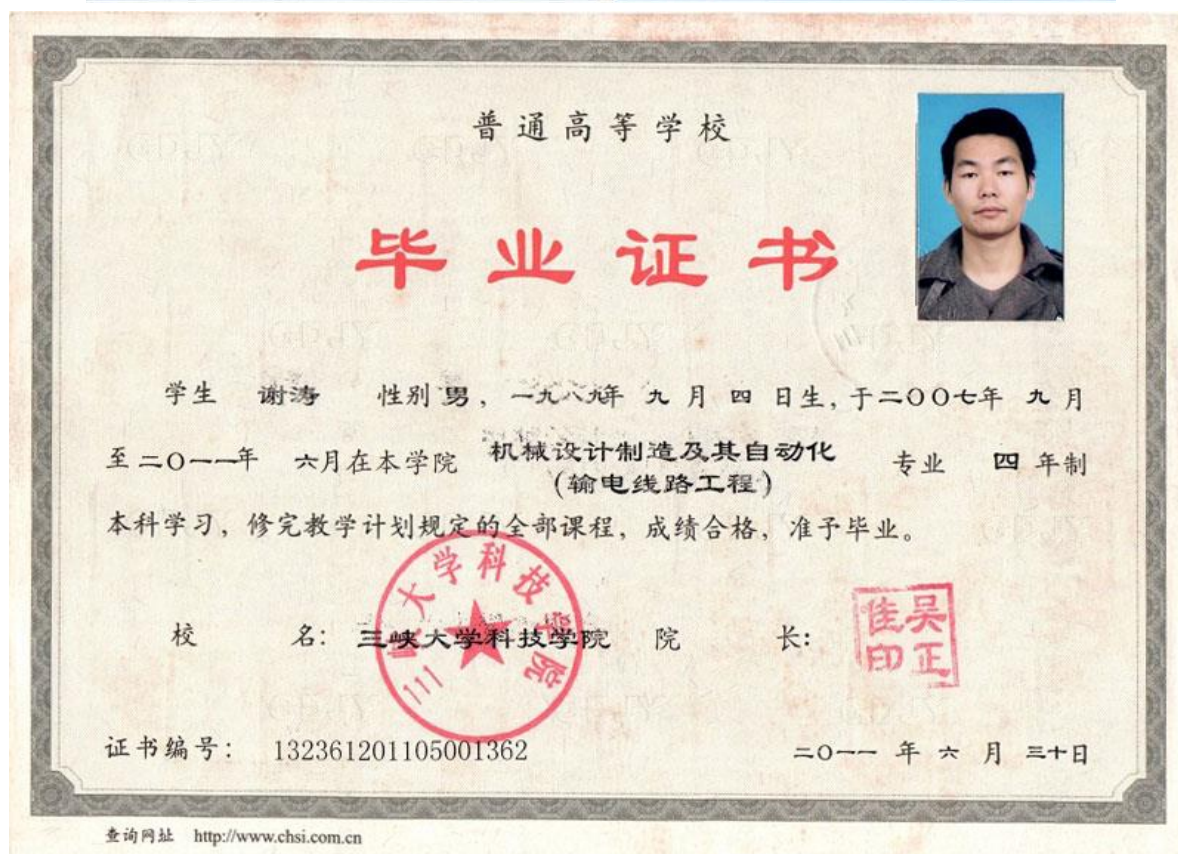 普通高等学校
毕业证书
学生 谢涛 性别 男，一九八九年 九 月 四 日生，于二〇〇七年 九 月
至二〇一一年 六月在本学院 机械设计制造及其自动化（输电线路工程） 专业 四 年制
本科学习，修完教学计划规定的全部课程，成绩合格，准予毕业。
校 名：三峡大学科技学院 院 长：
三峡大学科技学院
吴正佳印
证书编号： 132361201105001362 二〇一一 年 六 月 三十日
查询网址 http://www.chsi.com.cn